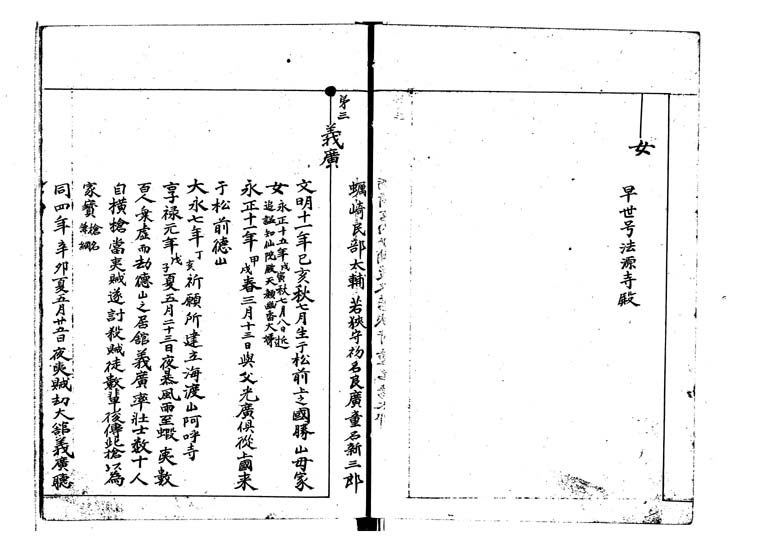 女
早世号法源寺殿
第三
義廣
蠣崎民部太輔 若狹守初名良廣童名新三郎
文明十一年己亥秋七月生于松前上之國勝山母家
女 永正十五年戊寅秋七月八日逝
追謚知仙院殿天嶺幽香大姉
永正十一年甲戌春三月十三日與父光廣倶從上國来
于松前徳山
大永七年丁亥祈願所建立海渡山阿吽寺
享禄元年戊子夏五月二十三日夜暴風雨至蝦夷數
百人乗虚而劫徳山之居舘義廣率壮士数十人
自横槍當夷賊遂討殺賊徒數輩後傳此槍以為
家寳 槍名
同四年辛卯夏五月廿五日夜夷賊劫大舘義廣聴